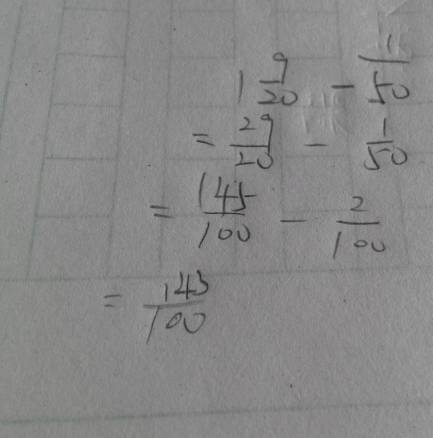 1 9/20 - 1/50
= 29/20 - 1/50
= 145/100 - 2/100
= 143/100